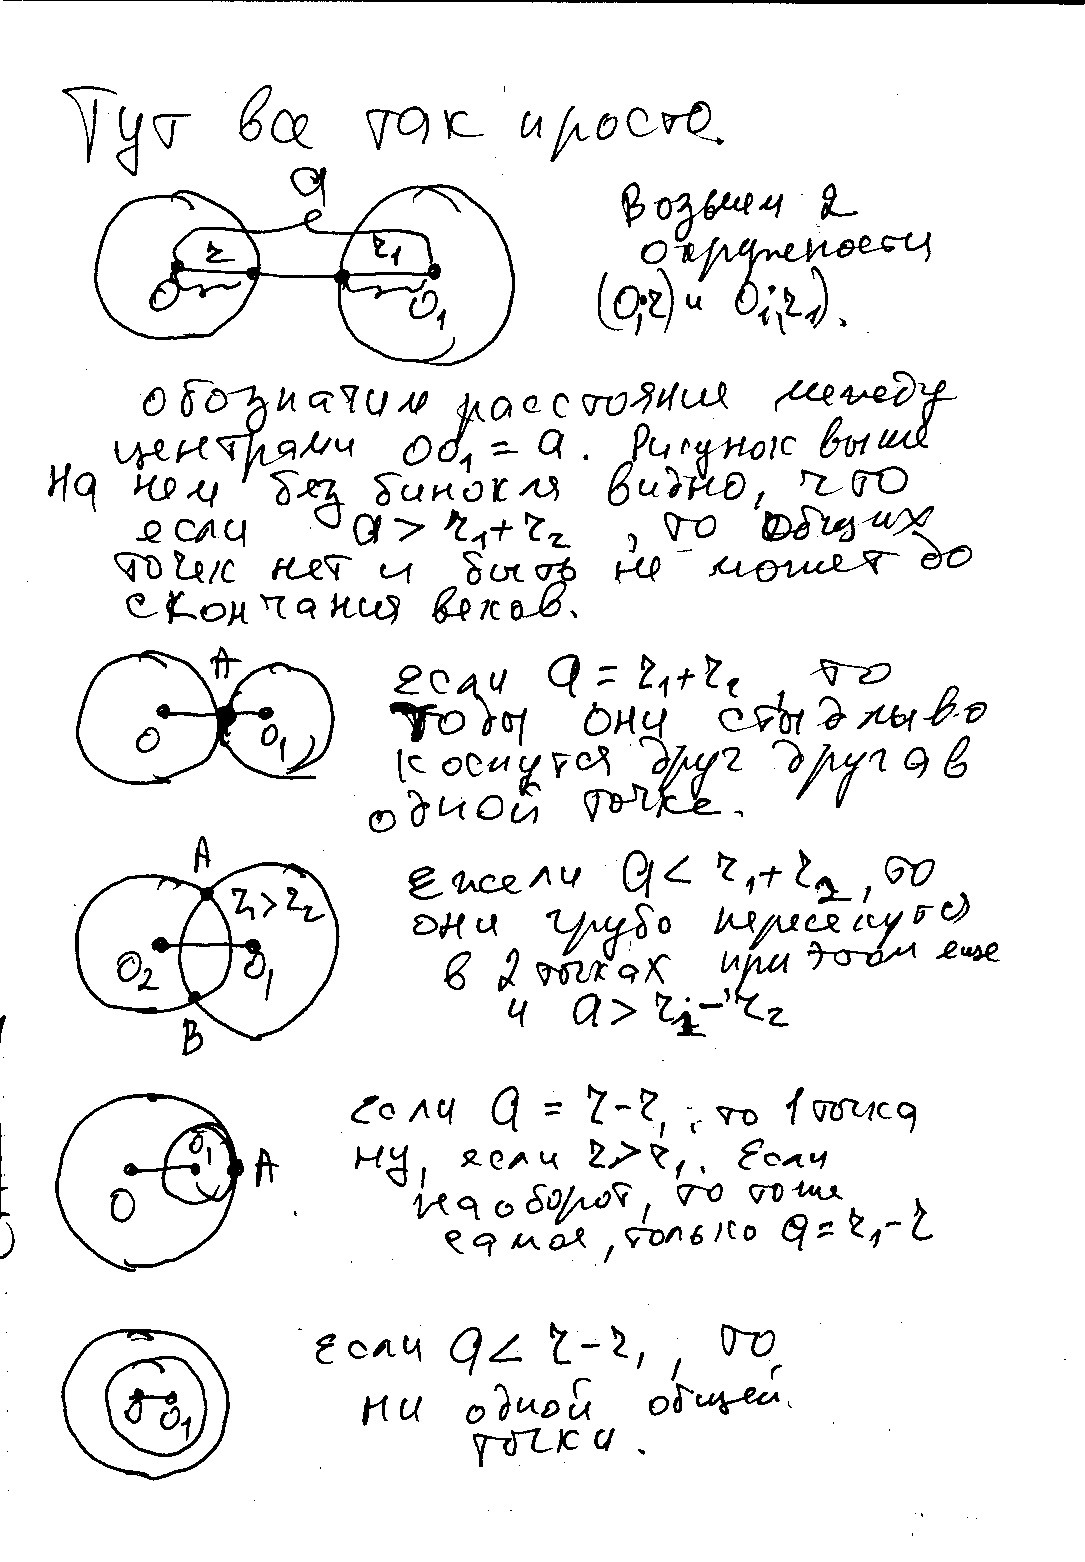 Тут все так просто.
a
r
r₁
O
O₁
Возьмем 2
окружности
(O;r) и O₁;r₁).
обозначим расстояние между
центрами OO₁ = a. Рисунок выше
На нем без бинокля видно, что
если a > r₁+r₂, то общих
точек нет и быть не может до
скончания веков.
A
O
O₁
если a = r₁+r₂, то
тоды они стыдливо
коснутся друг друга в
одной точке.
A
r₁>r₂
O₂
O₁
B
Ежели a < r₁+r₂, то
они грубо пересекутся
в 2 точках при этом еще
и a > r₁-r₂
O₁
A
O
Если a = r-r₁, то 1 точка
ну, если r>r₁. Если
наоборот, то тоже
самое, только a=r₁-r
O
O₁
Если a < r-r₁, то,
ни одной общей
точки.